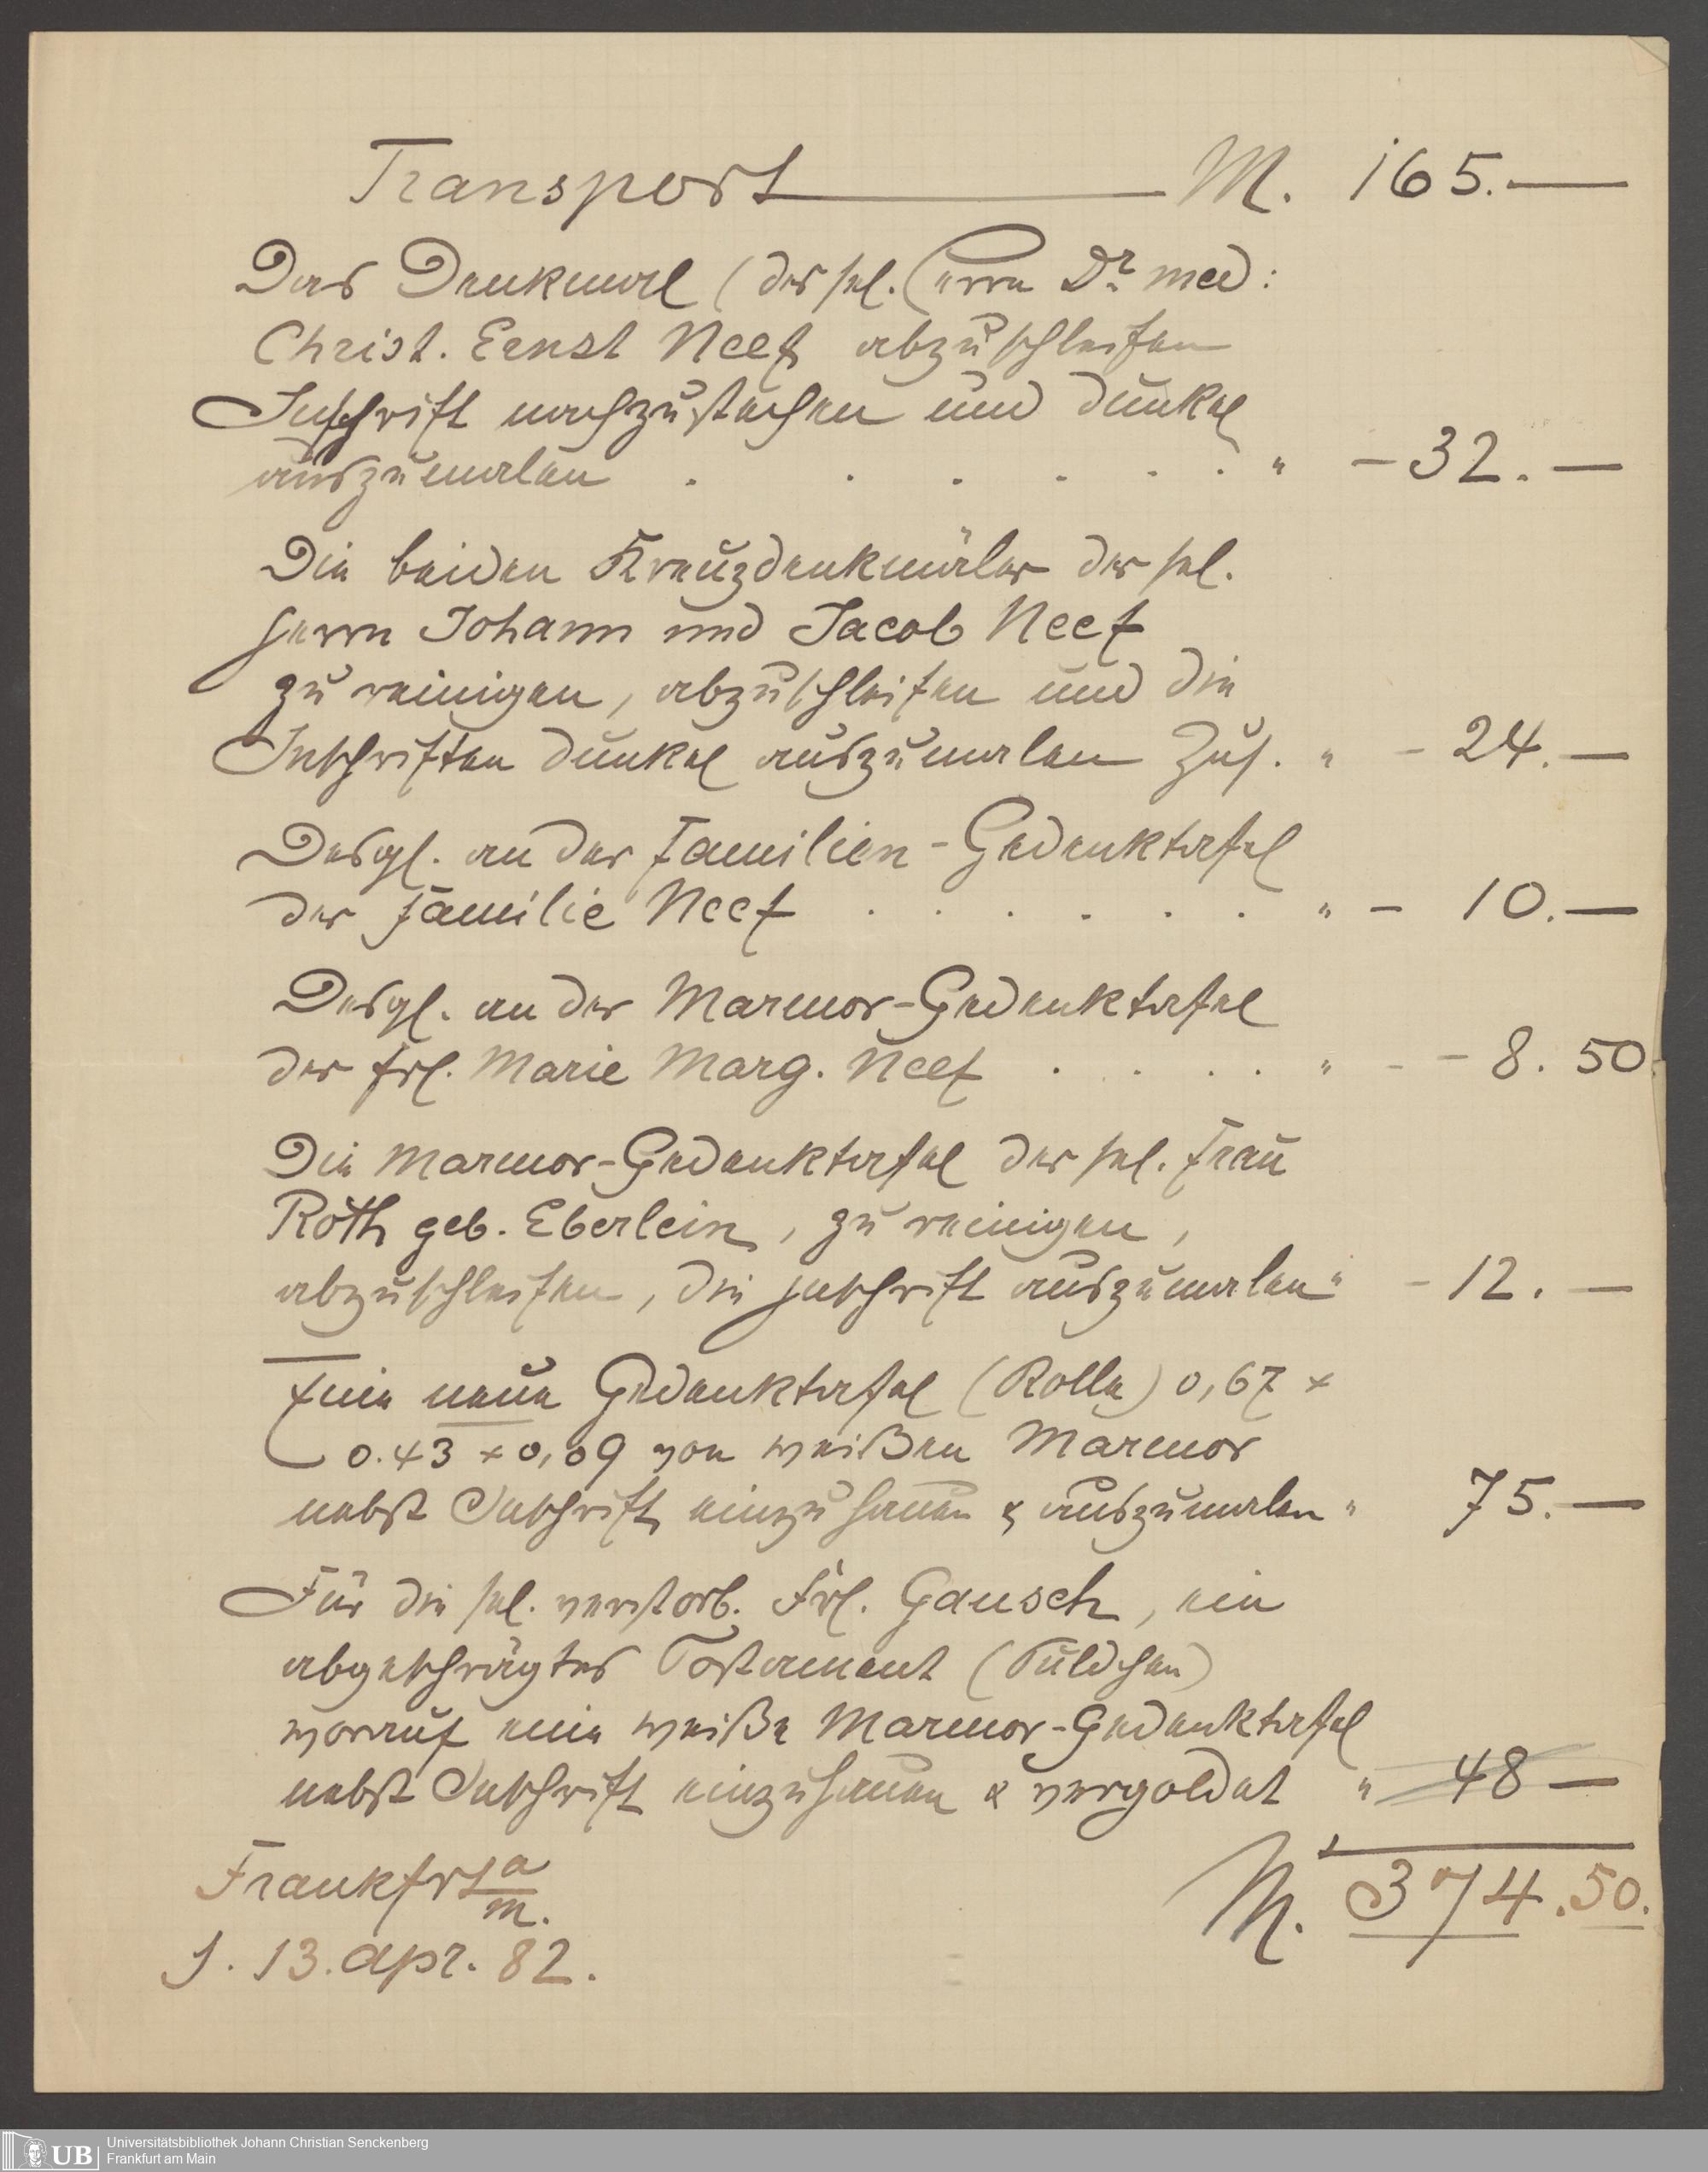 Transport M. 165.—
Das Denkmal (des sel. Herrn Dr. med:
Christ. Ernst Neef abzuschleifen
Inschrift nachzustechen und dunkel
auszumalen . . . . . . " – 32.—
Die beiden Kreuzdenkmäler der sel.
Herrn Johann und Jacob Neef
zu reinigen, abzuschleifen und die
Inschriften dunkel auszumalen Zus. " – 24.—
Desgl. an der Familien-Gedenktafel
der Familie Neef . . . . . . " – 10.—
Desgl. an der Marmor-Gedenktafel
der Frl. Marie Marg. Neef . . . . " – – 8. 50
Die Marmor-Gedenktafel der sel. Frau
Roth geb. Eberlein, zu reinigen,
abzuschleifen, die Inschrift auszumalen " – 12. —
Eine neue Gedenktafel (Rolle) 0,67 ×
0.43 × 0,09 von weißen Marmor
nebst Inschrift einzuhauen & auszumalen " 75.—
Für die sel. verstorb. Frl. Gausch, ein
abgeschrägtes Postament (Püldchen)
worauf eine weiße Marmor-Gedenktafel
nebst Inschrift einzuhauen & vergoldet " 48 —
Frankfrt a/m. M. 374.50.
d. 13. Apr. 82.
UB Universitätsbibliothek Johann Christian Senckenberg
Frankfurt am Main